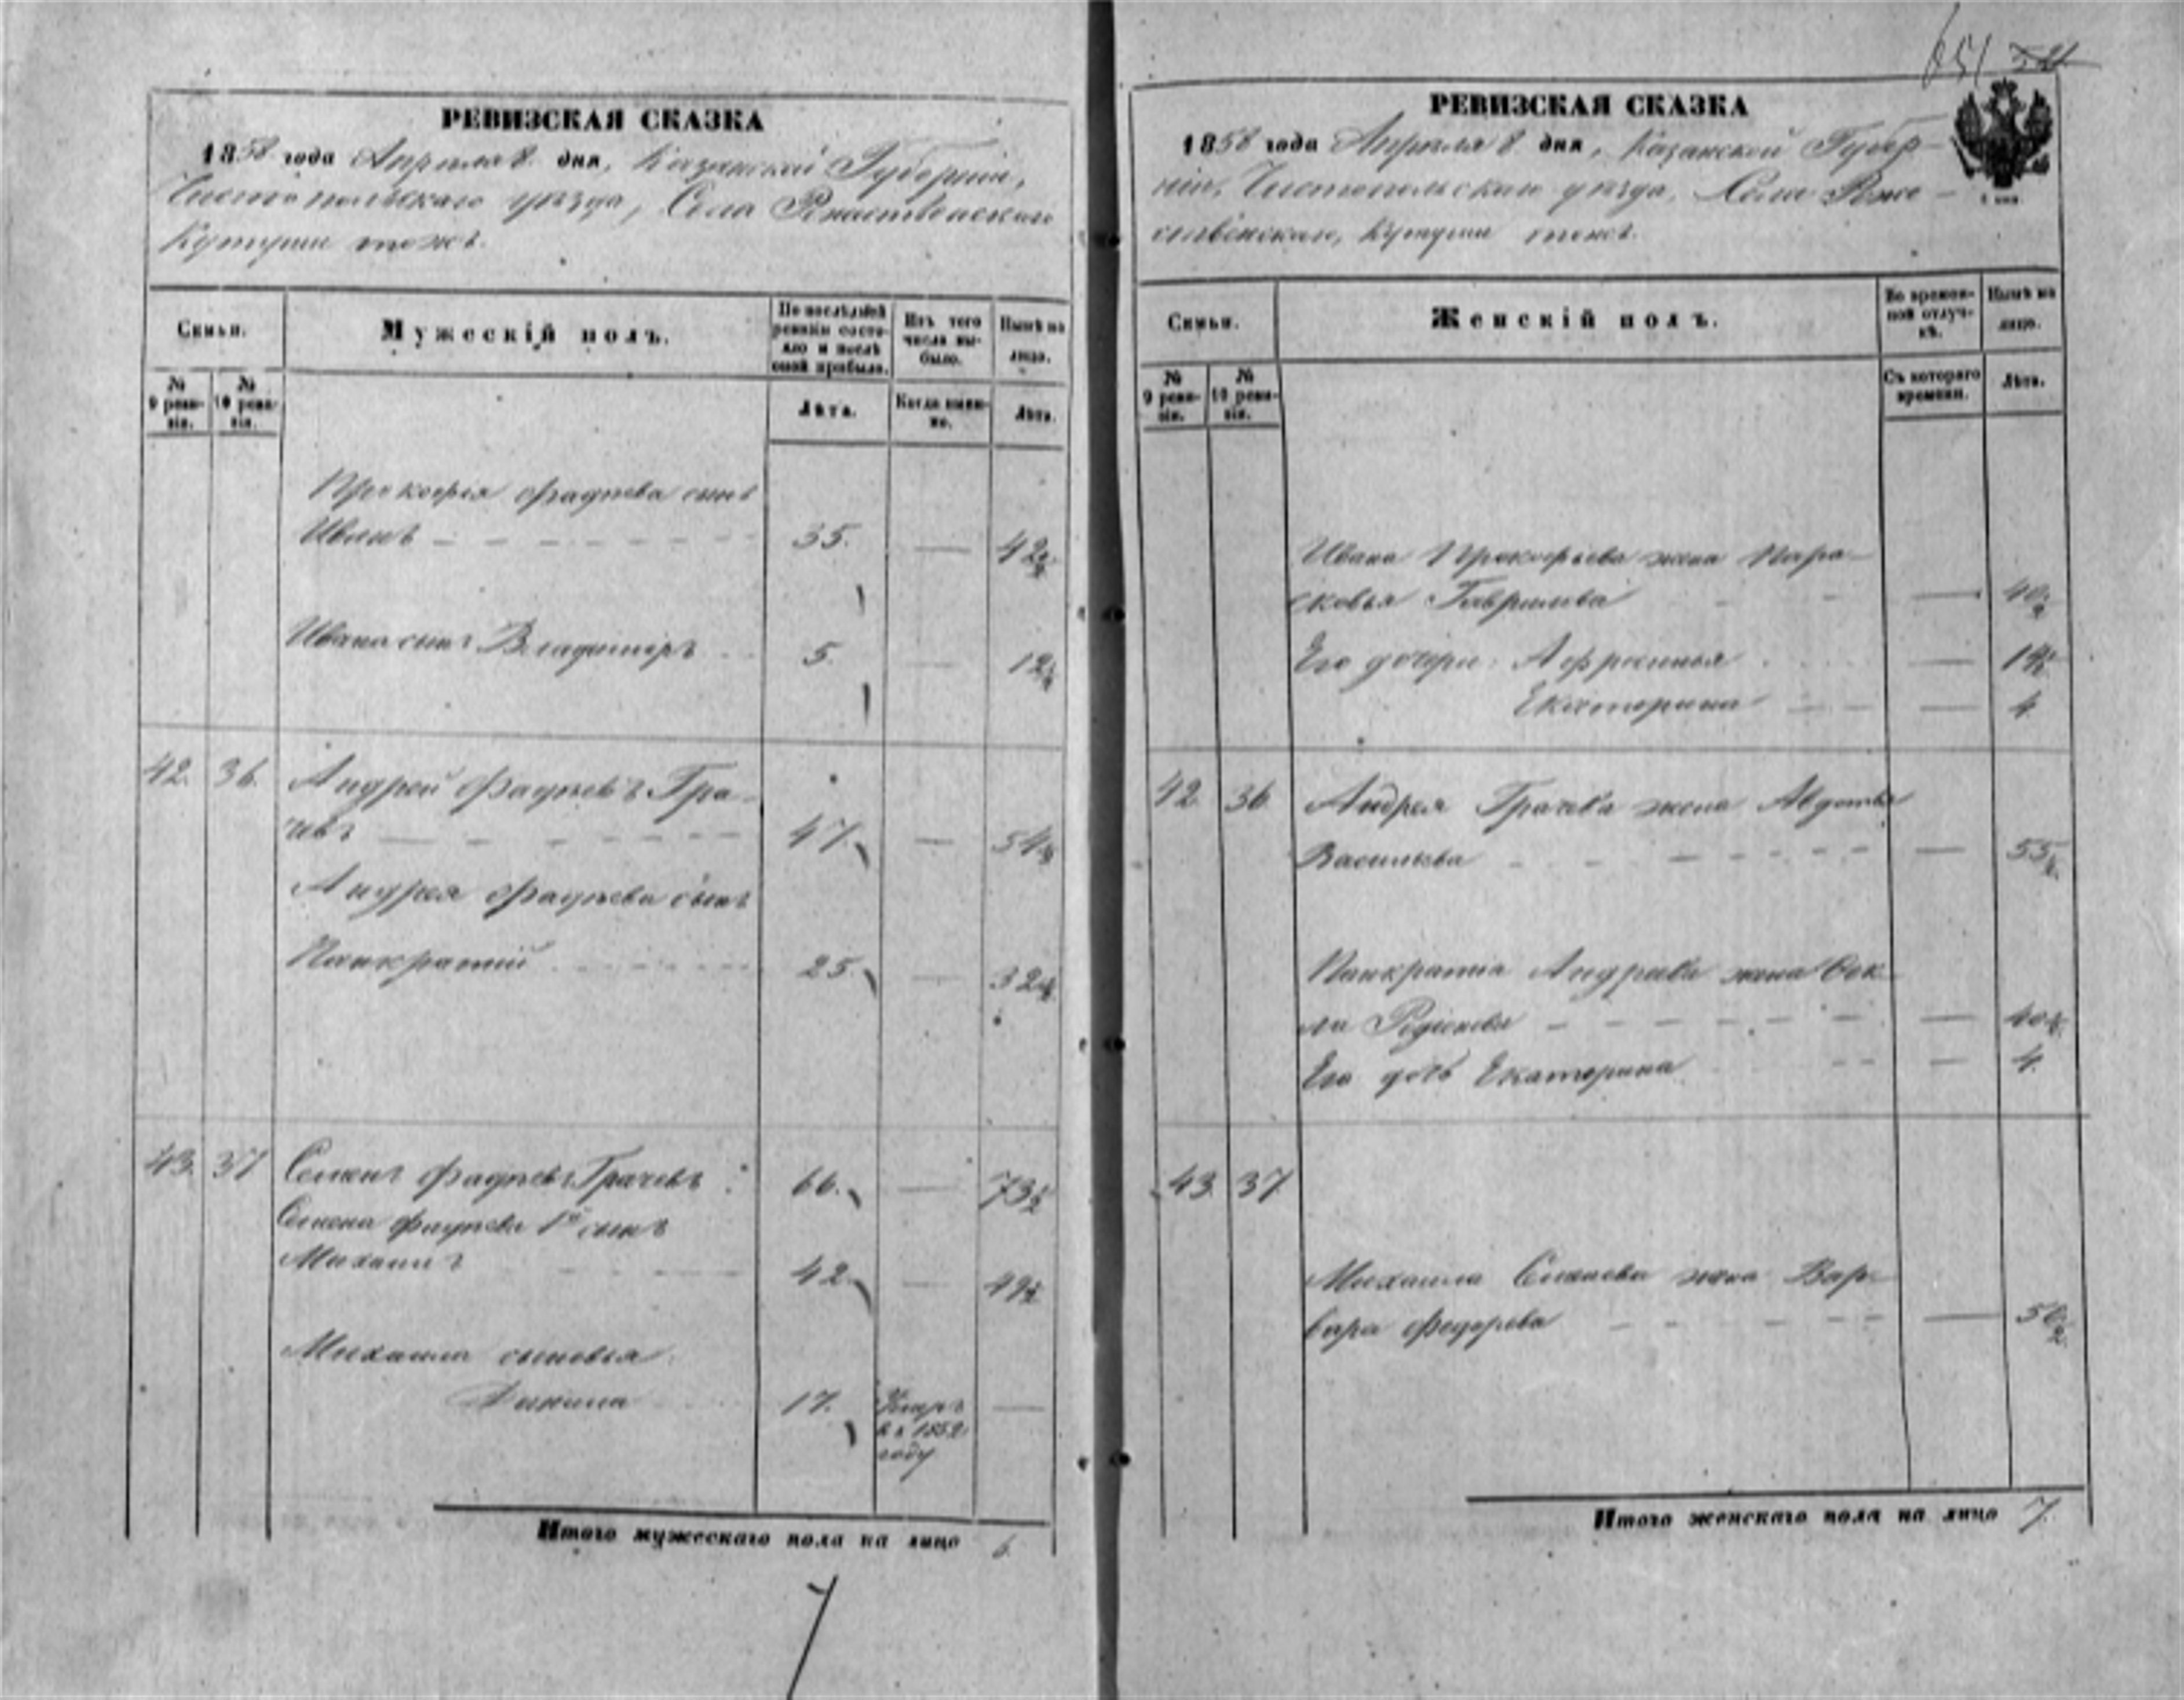 651 521
РЕВИЗСКАЯ СКАЗКА
1858 года Апреля 8 дня, Казанской Губернiи,
Чистопольскаго уѣзда, Села Рождественскаго
Кутуши тожъ.
Семьи.
Мужескiй полъ.
По послѣдней ревизiи состояло и послѣ оной прибыло.
Изъ того числа выбыло.
Нынѣ на лицо.
№ 9 ревизiи.
№ 10 ревизiи.
Лѣта.
Когда именно.
Лѣта.
Прокофья Фадѣева сынъ
Иванъ 35. — 42½
Ивана сынъ Владимiръ 5. — 12½
42. 36. Андрей Фадѣевъ Гра-
чевъ 47. — 54½
Андрея Фадѣева сынъ
Панкратiй 25. — 32½
43. 37 Семенъ Фадѣевъ Грачевъ 66. — 73½
Семена Фадѣева 1й сынъ
Михаилъ 42. — 49½
Михаила сыновья
Данила 17. Умеръ —
въ 1852
году
Итого мужескаго пола на лицо 6.
7
РЕВИЗСКАЯ СКАЗКА
1858 года Апреля 8 дня, Казанской Губер-
нiи, Чистопольскаго уѣзда, Села Роже-
ственскаго, Кутуши тожъ.
Семьи.
Женскiй полъ.
Во временной отлучкѣ.
Нынѣ на лицо.
№ 9 ревизiи.
№ 10 ревизiи.
Съ котораго времени.
Лѣта.
Ивана Прокофьева жена Пара-
сковья Гаврилова — 40½
Его дочери: Афросинья —
Екатерина — 4
42. 36. Андрея Грачева жена Авдотья
Васильева — 55½
Панкратiя Андреева жена Фек-
ла Родiонова — 40½
Его дочь Екатерина — 4.
43. 37.
Михаила Семенова жена Вар-
вара Федорова — 50½
Итого женскаго пола на лицо 7.